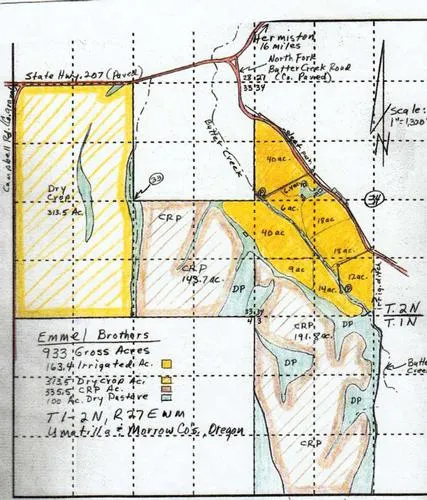 Hermiston
16 miles
North Fork
Butter Creek Road
(Co. Paved)
State Hwy. 207 (Paved)
28 27
33 34
Scale:
1"=1,320'
N
Campbell Rd.
Butter Creek
40 ac.
33
34
6 ac.
18 ac.
18 ac.
Dry
Crop
313.5 Ac.
CRP
40 ac
CRP
148.7 ac.
9 ac
12 ac.
14 ac.
DP
33 34
4 3
T. 2N
T. 1N
CRP
191.8 ac.
DP
DP
DP
CRP
Emmel Brothers
933 Gross Acres
163.4 Irrigated Ac.
313.5 Dry Crop Ac.
335.5 CRP Ac.
100 Ac. Dry Pasture
T 1-2N, R 27 E WM
Umatilla & Morrow Co's., Oregon